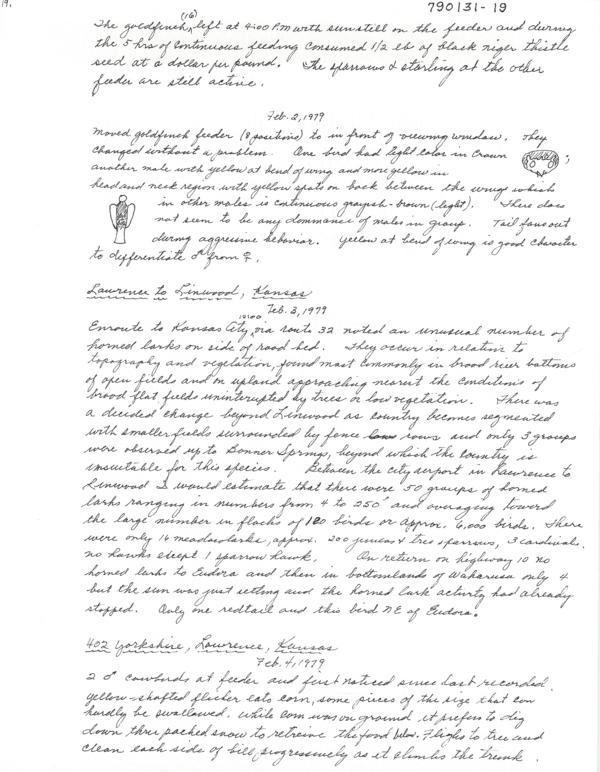 19.
790131-19
(16)
The goldfinch left at 4:00 P.M with sun still on the feeder and during
the 5 hrs of continuous feeding consumed 1/2 lb of black niger thistle
seed at a dollar per pound. The sparrows & starling at the other
feeder are still active.
Feb. 2, 1979
Moved goldfinch feeder (8 positions) to in front of viewing window. They
changed without a problem. One bird had light color in crown ;
another male with yellow at bend of wing and more yellow in
head and neck region with yellow spots on back between the wing which
in other males is continuous grayish-brown (light). There does
not seem to be any dominance of males in group. Tail fans out
during aggressive behavior. Yellow at bend of wing is good character
to differentiate ♂ from ♀.
Lawrence to Linwood, Kansas
Feb. 3, 1979
Enroute to Kansas City, via route 32 noted an unusual number of
horned larks on side of road bed. They occur in relation to
topography and vegetation, found most commonly in broad river bottoms
of open fields and on upland approaching nearest the conditions of
broad flat fields uninterupted by trees or low vegetation. There was
a decided change beyond Linwood as country becomes segmented
with smaller fields surrounded by fence rows and only 3 groups
were observed up to Bonner Springs, beyond which the country is
unsuitable for this species. Between the city airport in Lawrence to
Linwood I would estimate that there were 50 groups of horned
larks ranging in numbers from 4 to 250 and averaging toward
the large number in flocks of 120 birds or approx. 6,000 birds. There
were only 16 meadowlarks, approx. 200 juncos & tree sparrows, 3 cardinals,
no hawks except 1 sparrow hawk. On return on highway 10 no
horned larks to Eudora and then in bottomlands of Wakarusa only 4
but the sun was just setting and the horned lark activity had already
stopped. Only one redtail and this bird NE of Eudora.
402 Yorkshire, Lawrence, Kansas
Feb. 4, 1979
2 ♂ cowbirds at feeder and first noticed since last recorded.
Yellow-shafted flicker eats corn, some pieces of the size that can
hardly be swallowed. While corn was on ground, it prefers to dig
down thru packed snow to retrieve the food. Flies to tree and
clean each side of bill progressively as it climbs the trunk.